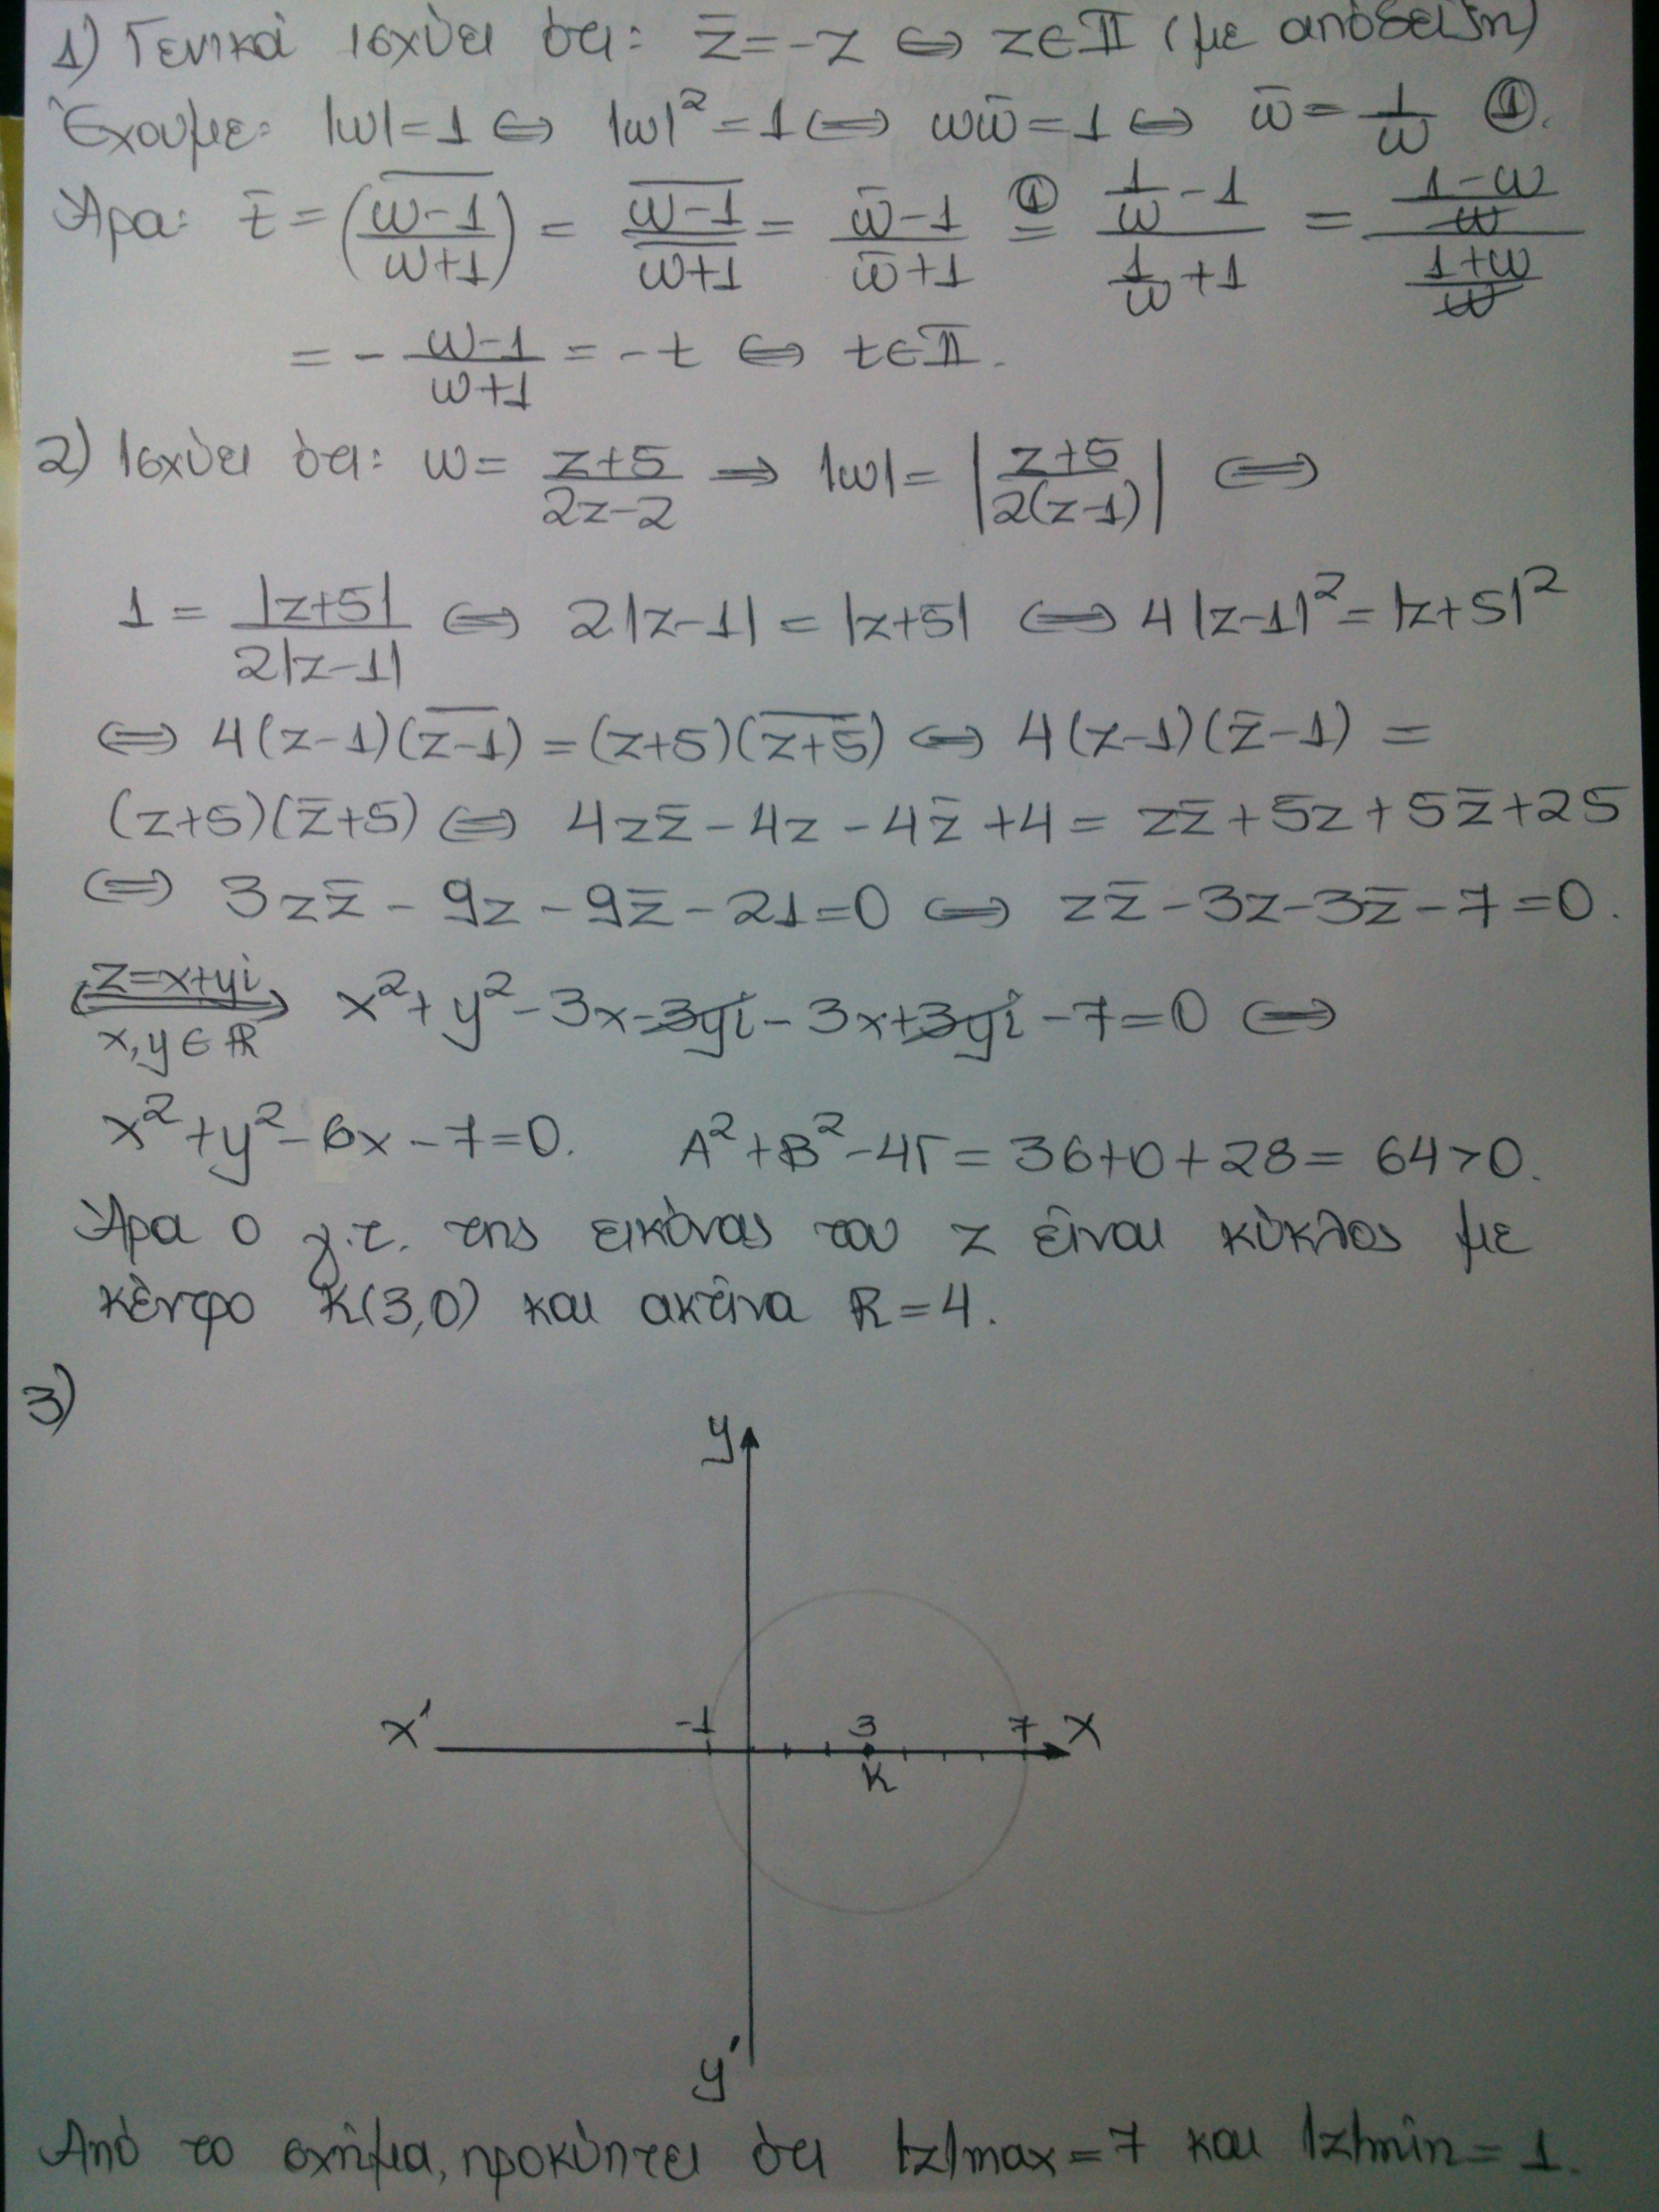 1) Γενικά ισχύει ότι: z̄=-z ⇔ z∈𝕀 (με απόδειξη)
Έχουμε: |w|=1 ⇔ |w|²=1 ⇔ ww̄=1 ⇔ w̄=1/w ①.
Άρα: t̄ = \overline{((w-1)/(w+1))} = \overline{w-1}/\overline{w+1} = (w̄-1)/(w̄+1) =① (1/w -1)/(1/w +1) = ((1-w)/w)/((1+w)/w)
= - (w-1)/(w+1) = -t ⇔ t∈𝕀.
2) Ισχύει ότι: w= (z+5)/(2z-2) ⇒ |w|= |(z+5)/(2(z-1))| ⇔
1 = |z+5|/(2|z-1|) ⇔ 2|z-1| = |z+5| ⇔ 4|z-1|²=|z+5|²
⇔ 4(z-1)(\overline{z-1}) = (z+5)(\overline{z+5}) ⇔ 4(z-1)(z̄-1) =
(z+5)(z̄+5) ⇔ 4zz̄ - 4z - 4z̄ +4 = zz̄ +5z + 5z̄ +25
⇔ 3zz̄ - 9z - 9z̄ - 21=0 ⇔ zz̄ -3z-3z̄ -7=0.
z=x+yi
⇔
x,y∈ℝ
x²+y²-3x-3yi-3x+3yi-7=0 ⇔
x²+y²-6x-7=0. A²+B²-4Γ = 36+0+28= 64>0.
Άρα ο γ.τ. της εικόνας του z είναι κύκλος με
κέντρο K(3,0) και ακτίνα R=4.
3)
y
x' -1 3 7 x
K
y'
Από το σχήμα, προκύπτει ότι |z|max=7 και |z|min=1.